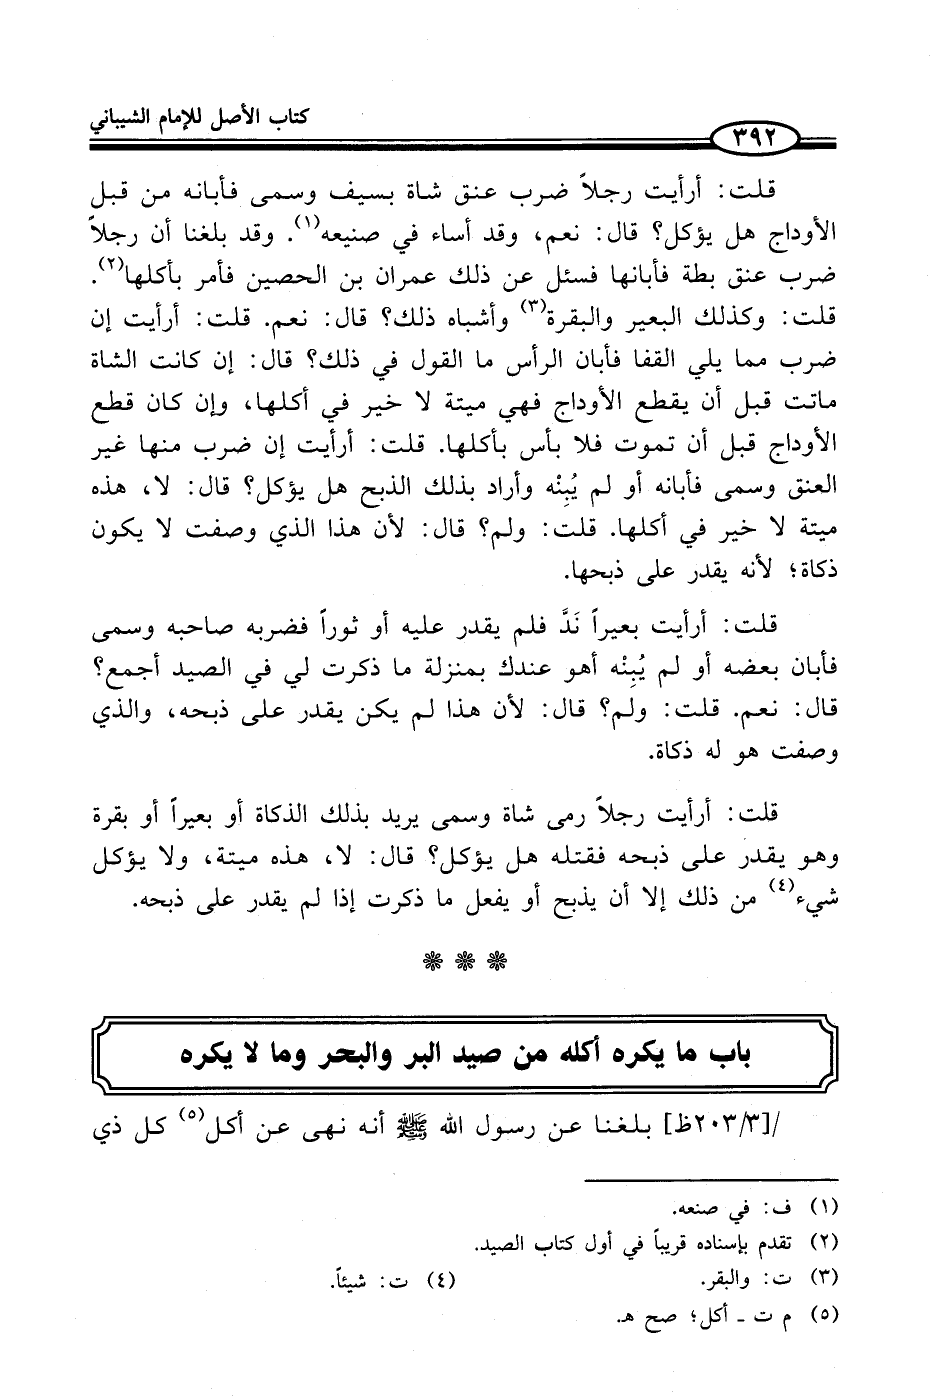 كتاب الأصل للإمام الشيباني
٣٩٢
قلت: أرأيت رجلاً ضرب عنق شاة بسيف وسمى فأبانه من قبل
الأوداج هل يؤكل؟ قال: نعم، وقد أساء في صنيعه(١). وقد بلغنا أن رجلاً
ضرب عنق بطة فأبانها فسئل عن ذلك عمران بن الحصين فأمر بأكلها(٢).
قلت: وكذلك البعير والبقرة(٣) وأشباه ذلك؟ قال: نعم. قلت: أرأيت إن
ضرب مما يلي القفا فأبان الرأس ما القول في ذلك؟ قال: إن كانت الشاة
ماتت قبل أن يقطع الأوداج فهي ميتة لا خير في أكلها، وإن كان قطع
الأوداج قبل أن تموت فلا بأس بأكلها. قلت: أرأيت إن ضرب منها غير
العنق وسمى فأبانه أو لم يُبِنْه وأراد بذلك الذبح هل يؤكل؟ قال: لا، هذه
ميتة لا خير في أكلها. قلت: ولم؟ قال: لأن هذا الذي وصفت لا يكون
ذكاة؛ لأنه يقدر على ذبحها.
قلت: أرأيت بعيراً نَدَّ فلم يقدر عليه أو ثوراً فضربه صاحبه وسمى
فأبان بعضه أو لم يُبِنْه أهو عندك بمنزلة ما ذكرت لي في الصيد أجمع؟
قال: نعم. قلت: ولم؟ قال: لأن هذا لم يكن يقدر على ذبحه، والذي
وصفت هو له ذكاة.
قلت: أرأيت رجلاً رمى شاة وسمى يريد بذلك الذكاة أو بعيراً أو بقرة
وهو يقدر على ذبحه فقتله هل يؤكل؟ قال: لا، هذه ميتة، ولا يؤكل
شيء(٤) من ذلك إلا أن يذبح أو يفعل ما ذكرت إذا لم يقدر على ذبحه.
باب ما يكره أكله من صيد البر والبحر وما لا يكره
/[٢٠٣/٣ظ] بلغنا عن رسول الله ﷺ أنه نهى عن أكل(٥) كل ذي
(١) ف: في صنعه.
(٢) تقدم بإسناده قريباً في أول كتاب الصيد.
(٣) ت: والبقر. (٤) ت: شيئاً.
(٥) م ت ـ أكل؛ صح هـ.